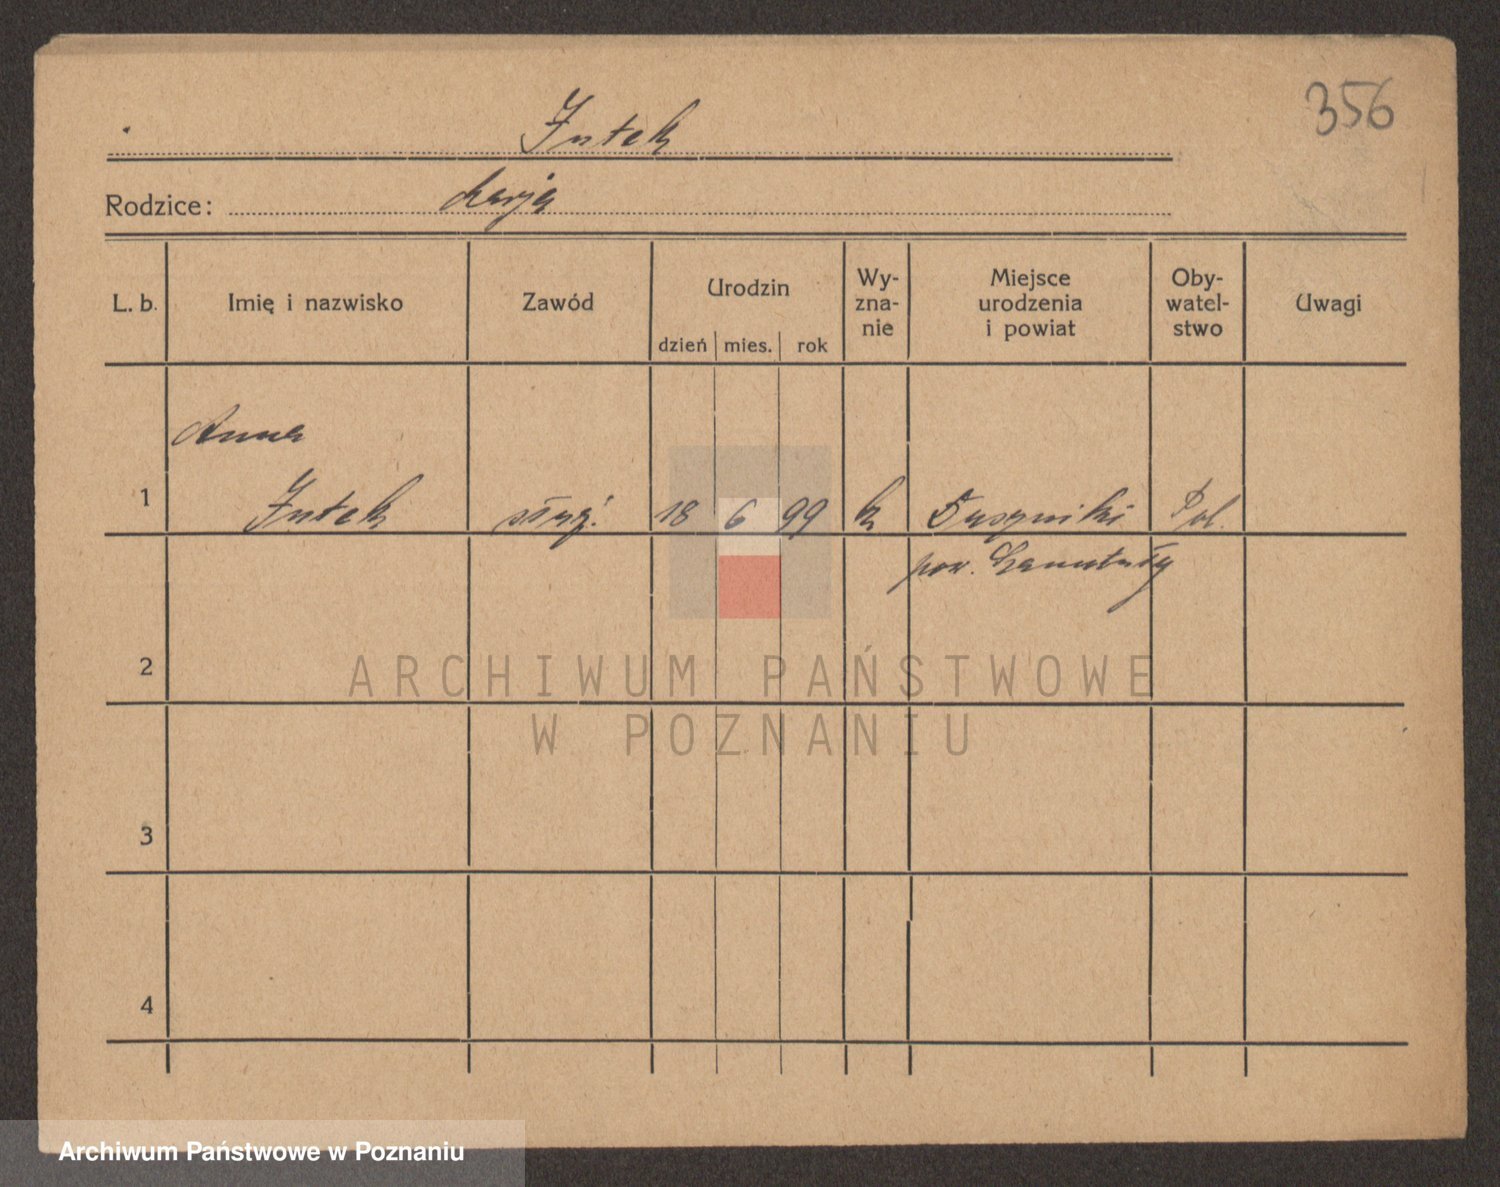 356
Jutek
Rodzice: Marja
L. b. Imię i nazwisko Zawód Urodzin dzień mies. rok Wy-zna-nie Miejsce urodzenia i powiat Oby-watel-stwo Uwagi
Anna
1 Jutek służ. 18 6 99 k Duszniki Pol.
pow. Szamotuły
2
3
4
ARCHIWUM PAŃSTWOWE
W POZNANIU
Archiwum Państwowe w Poznaniu